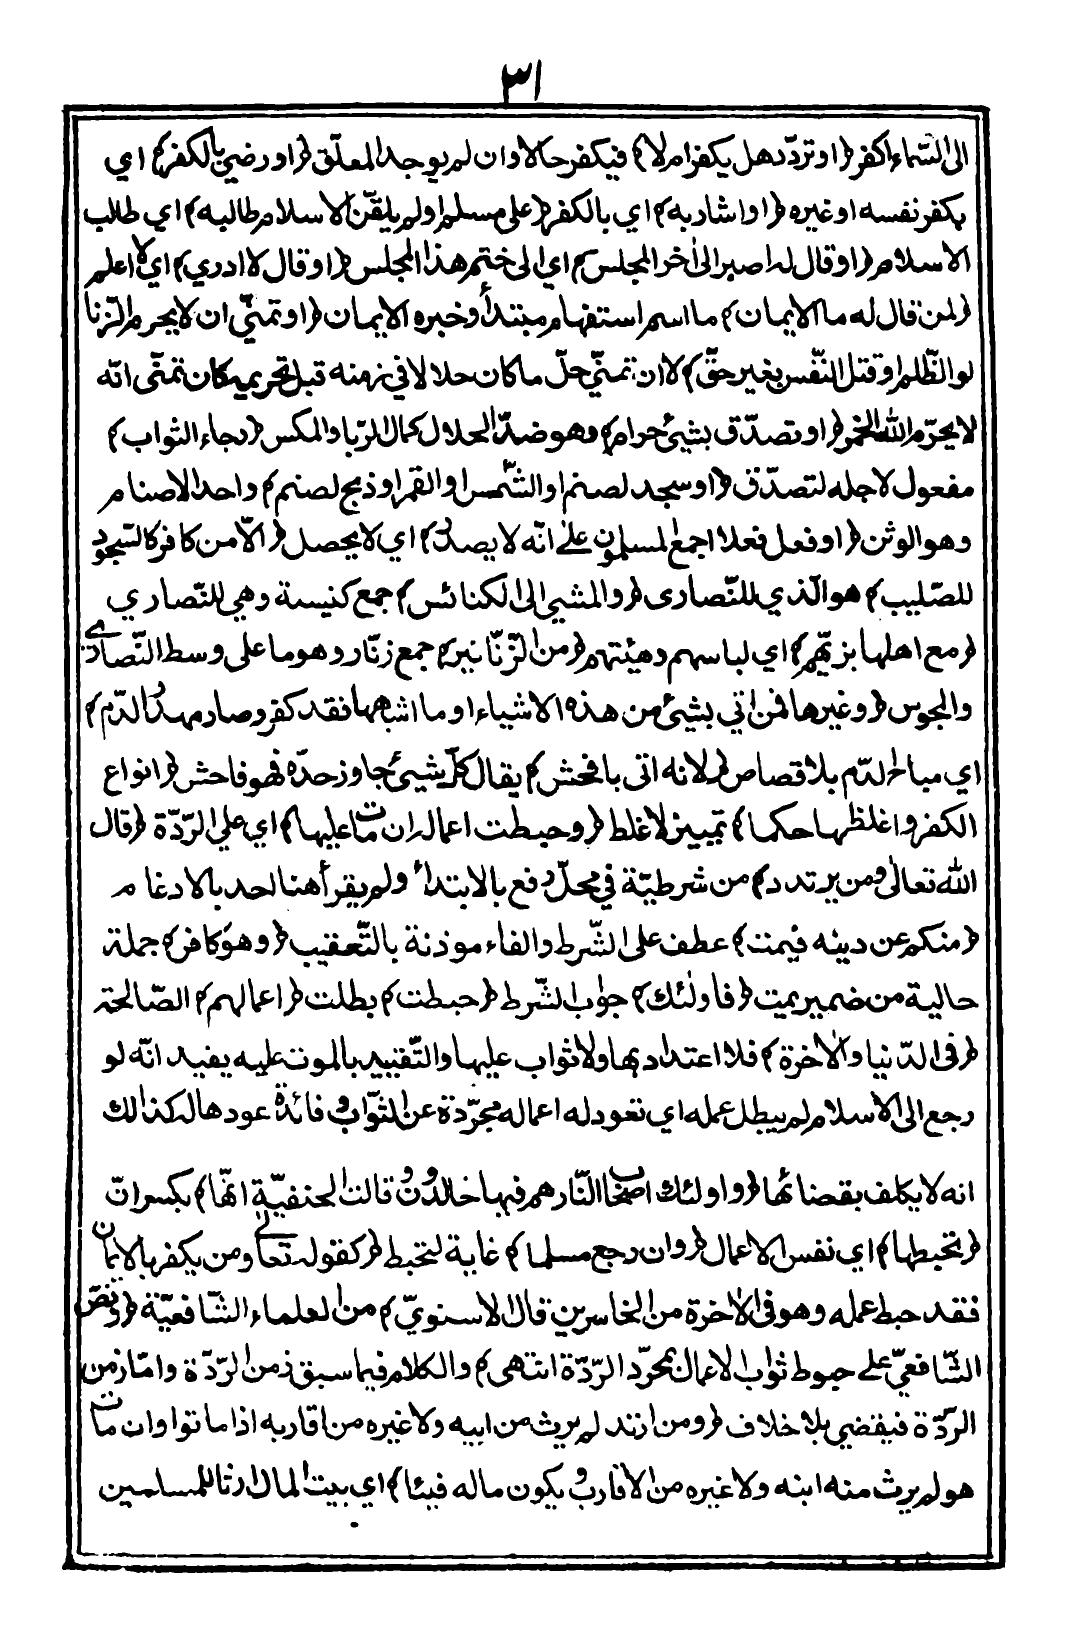 ٣١
الى السّماء اكفر ﴿او تردّد هل يكفر ام لا﴾ فيكفر حالا وان لم يوجد المعلّق ﴿او رضي بالكفر﴾ اي
بكفر نفسه او غيره ﴿او اشار به﴾ اي بالكفر ﴿على مسلم او لم يلقّن الاسلام طالبه﴾ اي طالب
الاسلام ﴿او قال له اصبر الى اٰخر المجلس﴾ اي الى ختم هذا المجلس ﴿او قال لا ادري﴾ اي لا اعلم
﴿لمن قال له ما الايمان﴾ ما اسم استفهام مبتدأ وخبره الايمان ﴿او تمنّي ان لا يحرم الزّنا
لو الظّلم او قتل النّفس بغير حقّ﴾ لا ان تمنّي حلّ ما كان حلالا في زمنه قبل تحريمه كان تمنّى انّه
لا يحرّم الله الخمر ﴿او تصدّق بشيئ حرام﴾ وهو ضدّ الحلال كمال الرّبا والمكس ﴿رجاء الثواب﴾
مفعول لاجله لتصدّق ﴿او سجد لصنم او الشّمس او القمر او ذبح لصنم﴾ واحد الاصنام
وهو الوثن ﴿او فعل فعلا اجمع المسلمون علىٰ انّه لا يصدر﴾ اي لا يحصل ﴿الاّ من كافر كالسّجود
للصّليب﴾ هو الّذي للنّصارى ﴿والمشي الى الكنائس﴾ جمع كنيسة وهي للنّصاري
﴿مع اهلها بزيّهم﴾ اي لباسهم وهيئتهم ﴿من الزّنانير﴾ جمع زنّار وهو ما على وسط النّصارى
والمجوس ﴿وغيرها فمن اتي بشيئ من هذه الاشياء او ما اشبهها فقد كفر وصار مهدر الدّم﴾
اي مباح الدّم بلا قصاص ﴿لانه اتى بافحش﴾ يقال كلّ شيئ جاوز حدّه فهو فاحش ﴿انواع
الكفر واغلظها حكما﴾ تمييز لاغلط ﴿وحبطت اعماله ان مات عليها﴾ اي على الرّدّة ﴿قال
الله تعالىٰ ومن يرتدد﴾ من شرطيّة في محلّ رفع بالابتداْ ولم يقرأ هنا احد بالادغام
﴿منكم عن دينه فيمت﴾ عطف على الشّرط والفاء موذنة بالتّعقيب ﴿وهو كافر﴾ جملة
حالية من ضمير يمت ﴿فاولٰئك﴾ جواب الشّرط ﴿حبطت﴾ بطلت ﴿اعمالهم﴾ الصّالحة
﴿فى الدّنيا والاٰخرة﴾ فلا اعتداد بها ولا ثواب عليها والتّقييد بالموت عليه يفيد انّه لو
رجع الى الاسلام لم يبطل عمله اي تعود له اعماله مجرّدة عن الثّواب وفائدة عودها له كذالك
انه لا يكلف بقضائها ﴿واولٰئك اصحٰاب النّار هم فيها خالدون وقالت الحنفيّة انّها﴾ بكسر انّ
﴿تحبطها﴾ اي نفس الاعمال ﴿وان رجع مسلما﴾ غاية لتحبط ﴿كقوله تعالىٰ ومن يكفر بالايمان
فقد حبط عمله وهو فى الاٰخرة من الخاسرين قال الاسنويّ﴾ من العلماء الشّافعيّة ﴿ونصّ
الشّافعيّ على حبوط ثواب الاعمال بمجرّد الرّدّة انتهى﴾ والكلام فيما سبق زمن الرّدّة وامّا زمن
الرّدّة فيقضي بلا خلاف ﴿ومن ارتد لم يرث من ابيه ولا غيره من اقاربه اذا ماتوا وان مات
هو لم يرث منه ابنه ولا غيره من الاقارب ويكون ماله فيئا﴾ اي بيت المال ارثا للمسلمين